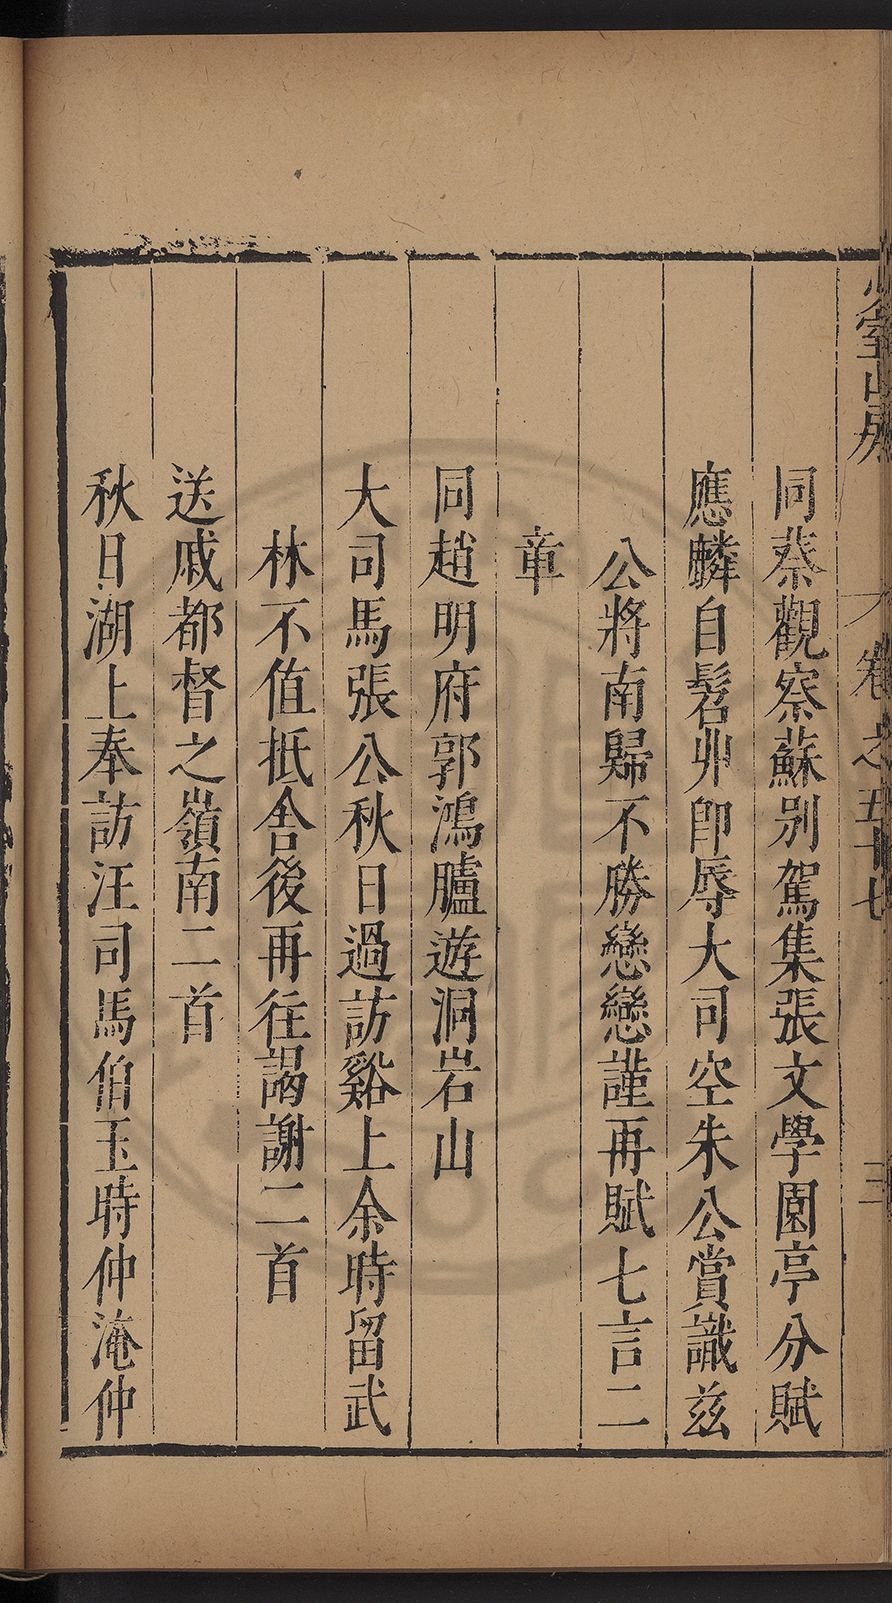 山房
卷之五十七
三
同蔡觀察蘇別駕集張文學園亭分賦
應麟自髫丱即辱大司空朱公賞識兹
公將南歸不勝戀戀謹再賦七言二
章
同趙明府郭鴻臚遊洞岩山
大司馬張公秋日過訪谿上余時留武
林不值抵舍後再往謁謝二首
送戚都督之嶺南二首
秋日湖上奉訪汪司馬伯玉時仲淹仲